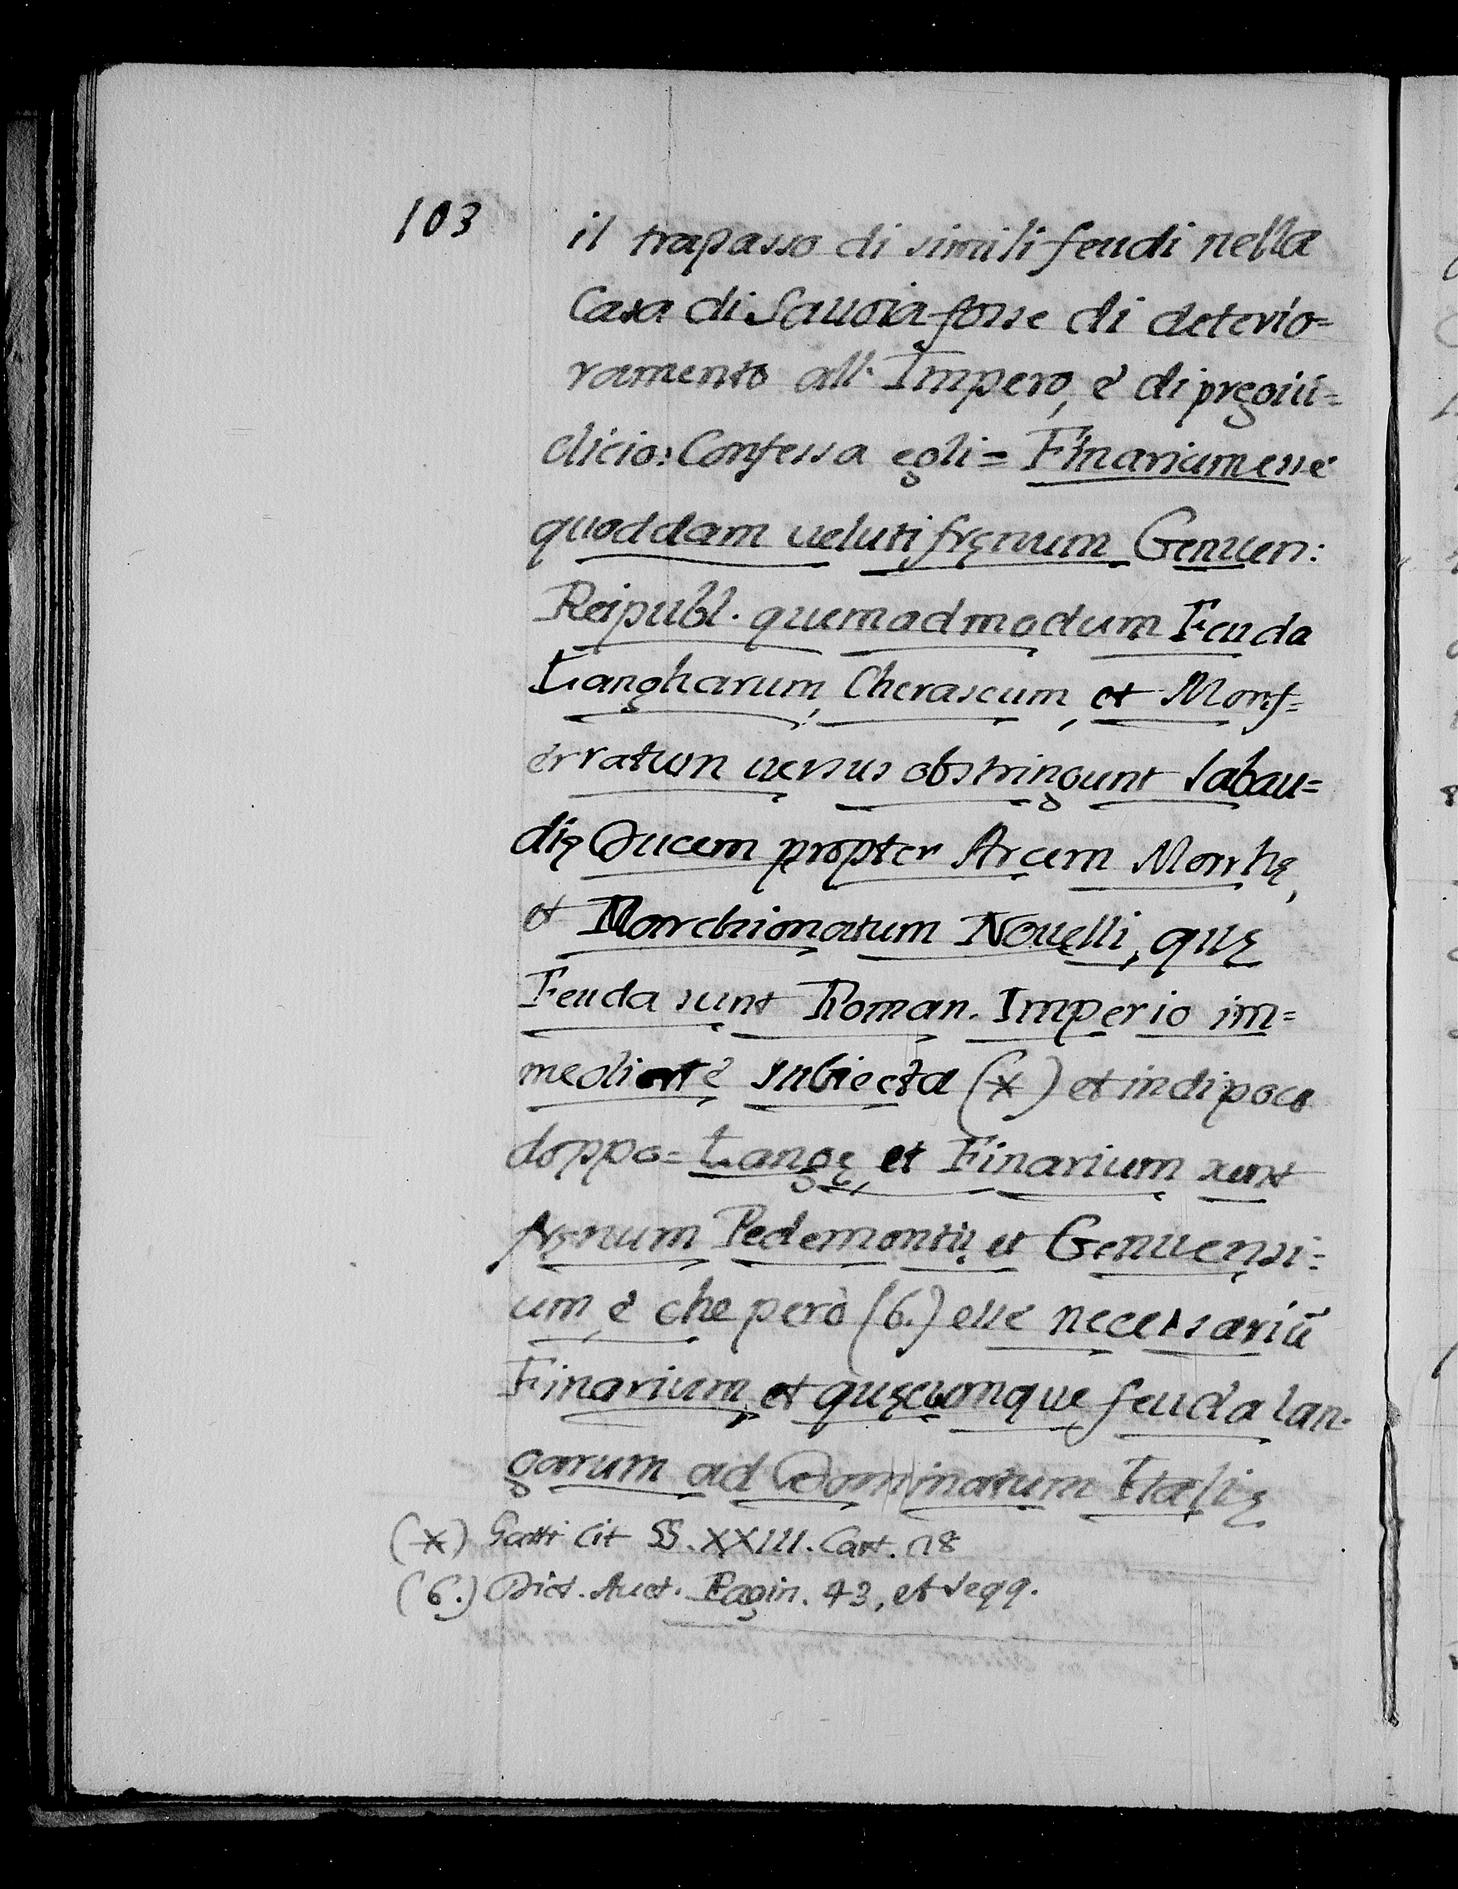 103
il trapasso di simili feudi nella
Casa di Sauoia fosse di deterio=
ramento all' Impero, è di pregiu=
dicio: Confessa egli= Finarium esse
quoddam ueluti fręnum Genuen:
Reipubl. quemadmodum Feuda
Langharum, Cherascum, et Monf=
erratum uersus obstringunt Sabau=
dię Ducem propter Arcem Monthę,
et Marchionatum Nouelli, quę
Feuda sunt Roman. Imperio im=
mediatè subiecta (X) et indi poco
doppo= Langę, et Finarium sunt
fręnum Pedemontij, et Genuensi=
um, è che però (6.) esse necessariũ
Finarium, et quęcumque feuda lan-
garum ad Dominatum Italię
(X) Gatti Cit §§. XXIII. Cart. 18
(6.) Dict. Auct. Pagin. 43, et seqq.